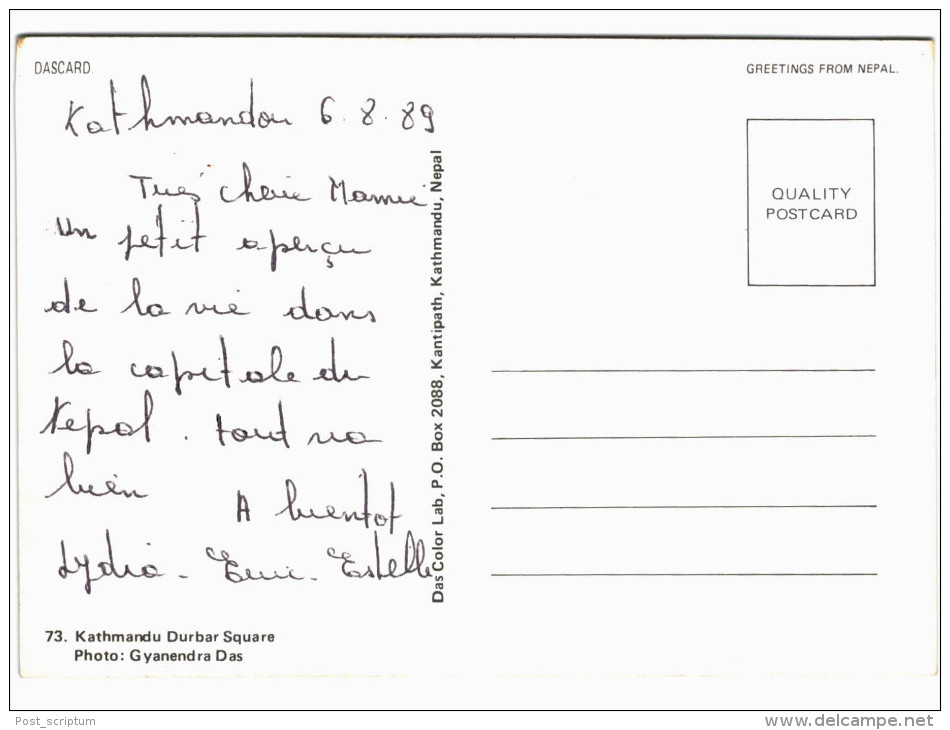 DASCARD.
GREETINGS FROM NEPAL.
Kathmandou 6.8.89
Très chère Mamie
Un petit aperçu
de la vie dans
la capitale du
Népal. tout va
bien
A bientot
Lydia - Eric - Estelle
QUALITY
POSTCARD
Das Color Lab, P.O. Box 2088, Kantipath, Kathmandu, Nepal
73. Kathmandu Durbar Square
Photo: Gyanendra Das
Post_scriptum
www.delcampe.net